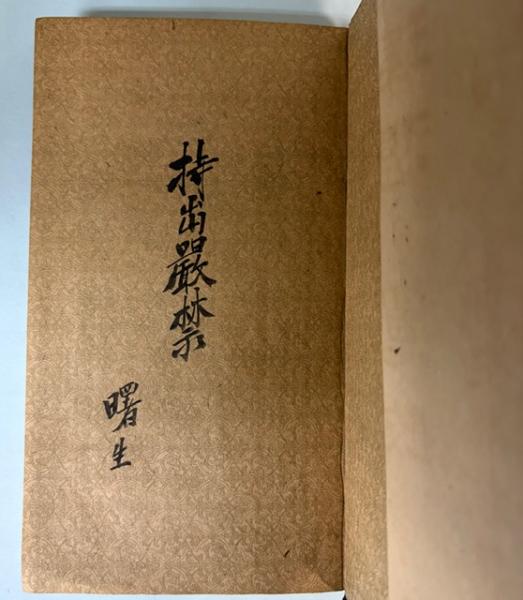 持出嚴禁
曙生